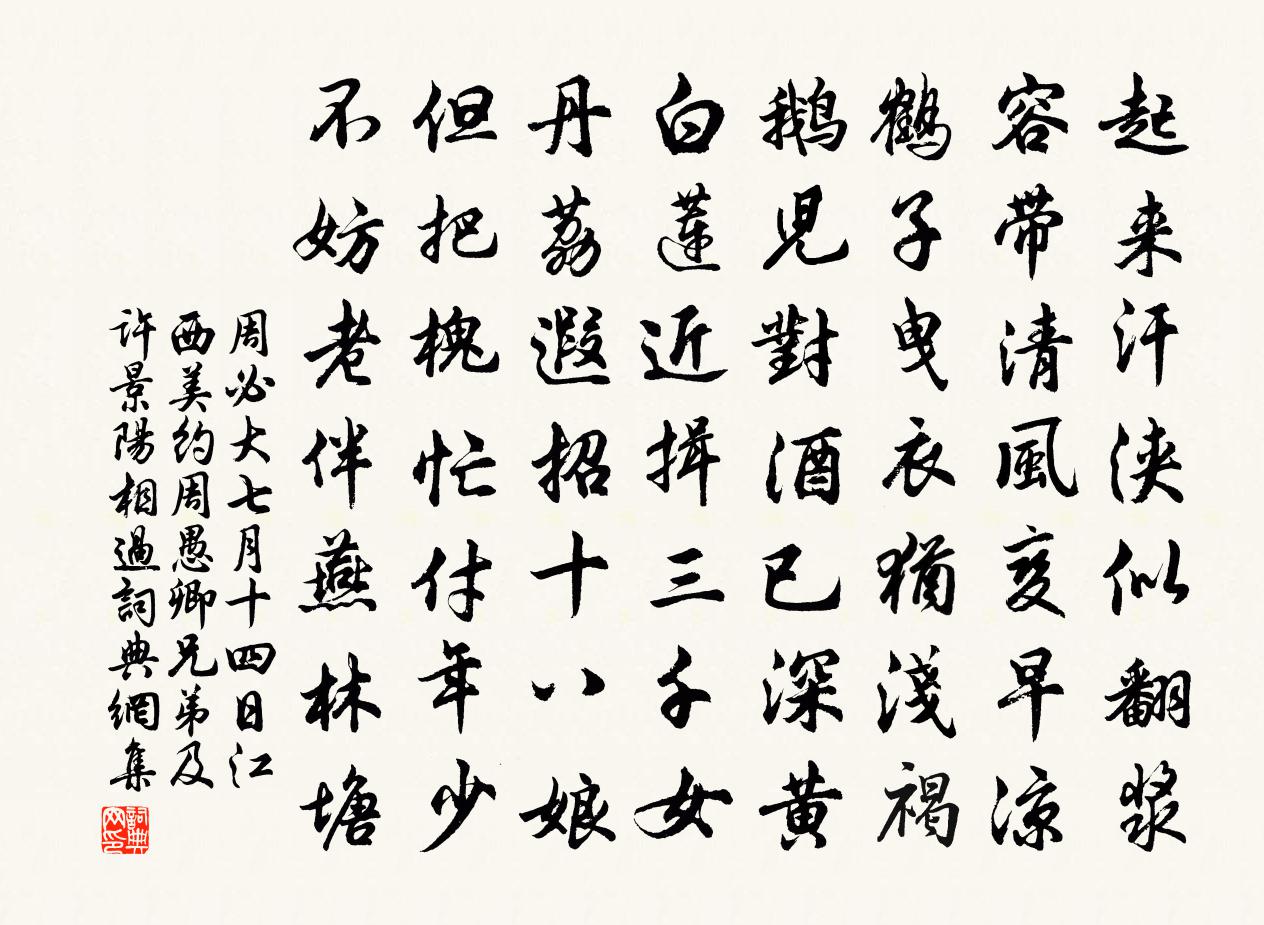 起来汗浹似翻漿
容帶清風変早涼
鶴子曳衣猶淺褐
鵝児對酒已深黄
白蓮近揖三千女
丹荔遐招十八娘
但把槐忙付年少
不妨老伴燕林塘
周必大七月十四日江
西美約周愚卿兄弟及
許景陽相過詞典網集
詞典网印